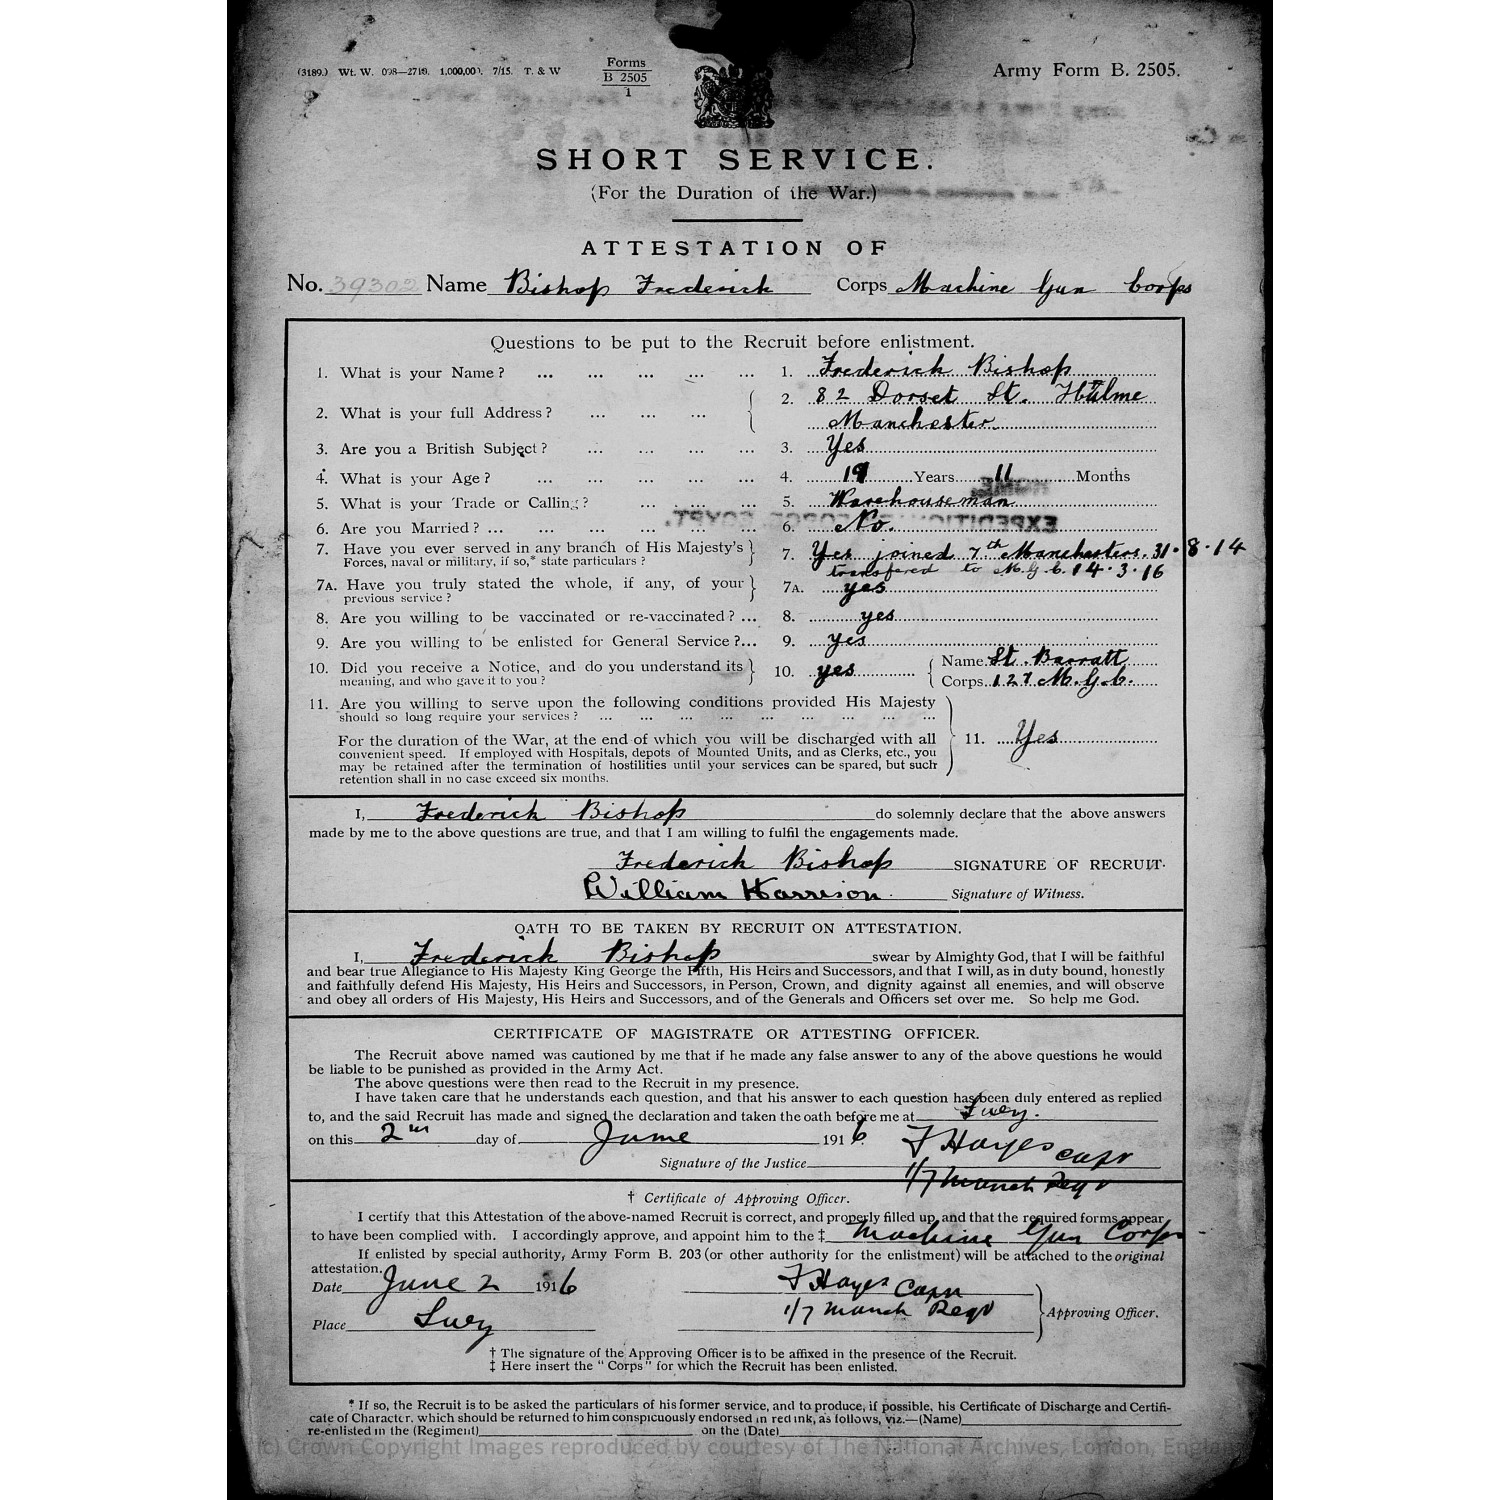 (3189.) Wt. W. 098—2719. 1,000,000. 7/15. T. & W
Forms
B 2505
1
Army Form B. 2505.
SHORT SERVICE.
(For the Duration of the War.)
ATTESTATION OF
No. 39302 Name Bishop Frederick Corps Machine Gun Corps
Questions to be put to the Recruit before enlistment.
1. What is your Name? ... ... ... ... ... 1. Frederick Bishop
2. What is your full Address? ... ... ... 2. 82 Dorset St. Hulme
Manchester
3. Are you a British Subject? ... ... ... ... 3. Yes
4. What is your Age? ... ... ... ... ... 4. 19 Years 11 Months
5. What is your Trade or Calling? ... ... ... 5. Warehouseman
6. Are you Married? ... ... ... ... ... 6. No.
EXPEDITIONARY FORCE EGYPT.
7. Have you ever served in any branch of His Majesty's 7. Yes joined 7th Manchesters. 31.8.14
Forces, naval or military, if so,* state particulars? transfered to M.G.C. 14.3.16
7A. Have you truly stated the whole, if any, of your 7A. yes
previous service?
8. Are you willing to be vaccinated or re-vaccinated? ... 8. yes
9. Are you willing to be enlisted for General Service?... 9. yes
10. Did you receive a Notice, and do you understand its 10. yes Name St. Barratt
meaning, and who gave it to you? Corps 127 M.G.C.
11. Are you willing to serve upon the following conditions provided His Majesty
should so long require your services? ... ... ... ... ... ... ... ... ...
For the duration of the War, at the end of which you will be discharged with all 11. Yes
convenient speed. If employed with Hospitals, depots of Mounted Units, and as Clerks, etc., you
may be retained after the termination of hostilities until your services can be spared, but such
retention shall in no case exceed six months.
I, Frederick Bishop do solemnly declare that the above answers
made by me to the above questions are true, and that I am willing to fulfil the engagements made.
Frederick Bishop SIGNATURE OF RECRUIT.
William Harrison Signature of Witness.
OATH TO BE TAKEN BY RECRUIT ON ATTESTATION.
I, Frederick Bishop swear by Almighty God, that I will be faithful
and bear true Allegiance to His Majesty King George the Fifth, His Heirs and Successors, and that I will, as in duty bound, honestly
and faithfully defend His Majesty, His Heirs and Successors, in Person, Crown, and dignity against all enemies, and will observe
and obey all orders of His Majesty, His Heirs and Successors, and of the Generals and Officers set over me. So help me God.
CERTIFICATE OF MAGISTRATE OR ATTESTING OFFICER.
The Recruit above named was cautioned by me that if he made any false answer to any of the above questions he would
be liable to be punished as provided in the Army Act.
The above questions were then read to the Recruit in my presence.
I have taken care that he understands each question, and that his answer to each question has been duly entered as replied
to, and the said Recruit has made and signed the declaration and taken the oath before me at Suez.
on this 2nd day of June 1916. F Hayes Capt
Signature of the Justice 1/7 Manch Regt
† Certificate of Approving Officer.
I certify that this Attestation of the above-named Recruit is correct, and properly filled up, and that the required forms appear
to have been complied with. I accordingly approve, and appoint him to the ‡ Machine Gun Corps
If enlisted by special authority, Army Form B. 203 (or other authority for the enlistment) will be attached to the original
attestation.
Date June 2 1916 F Hayes Capt
1/7 Manch Regt Approving Officer.
Place Suez
† The signature of the Approving Officer is to be affixed in the presence of the Recruit.
‡ Here insert the "Corps" for which the Recruit has been enlisted.
* If so, the Recruit is to be asked the particulars of his former service, and to produce, if possible, his Certificate of Discharge and Certifi-
cate of Character, which should be returned to him conspicuously endorsed in red ink, as follows, viz.—(Name)
re-enlisted in the (Regiment) on the (Date)
(c) Crown Copyright Images reproduced by courtesy of The National Archives, London, England